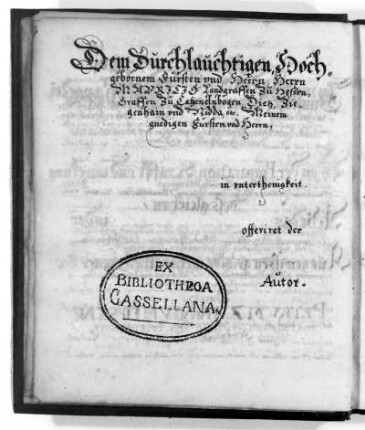 Dem Durchlauchtigen, Hoch-
gebornem Fürsten vnd Herrn, Herrn
MAVRITIO Landgraffen Zu Hessen,
Graffen Zu Catzenelnbogen Dietz, Zie-
genhain vnd Nidda, etc. Meinem
gnedigen Fürsten vnd Herrn,
in vnterthenigkeit.
offeriret der
Autor.
EX
BIBLIOTHECA
CASSELLANA.